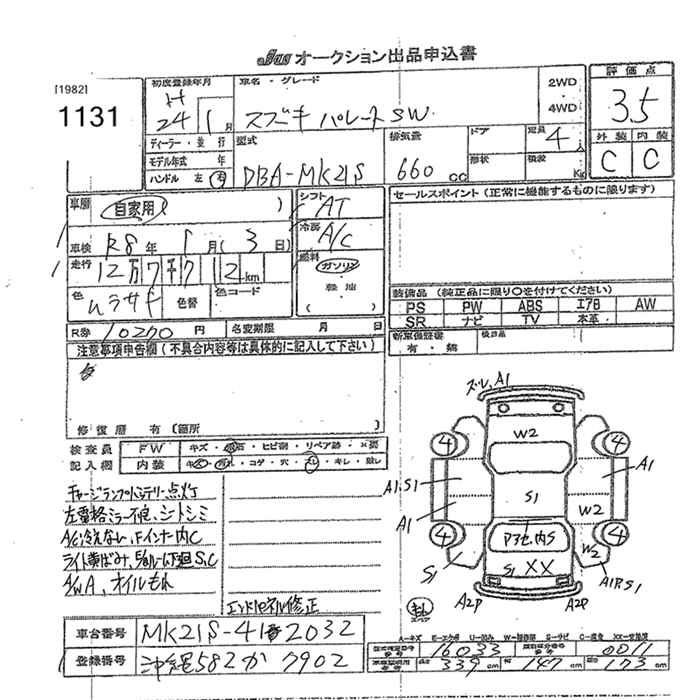 JAAS オークション出品申込書
[1982]
1131
初度登録年月
H
24年 1月
車名・グレード
スズキ パレットSW
2WD
・
4WD
評価点
3.5
外装 内装
C C
ディーラー・並行
モデル年式 年
ハンドル 左・右
型式
DBA-MK21S
排気量
660 CC
ドア
形状
定員 4人
積載 Kg
車歴
自家用 ( )
車検 R8年 1月(3日)
走行
12万7千712km
色 ムラサキ 色替 色コード
シフト AT
冷房 A/C
燃料
ガソリン
軽油
セールスポイント(正常に機能するものに限ります)
装備品(純正品に限り○を付けてください)
PS PW ABS エアB AW
SR ナビ TV 本革
R券 10270 円 名変期限 月 日
新車保証書
有・無
後日品
注意事項申告欄(不具合内容等は具体的に記入して下さい)
修復歴 有(箇所 )
検査員
記入欄
FW キズ・飛石・ヒビ割・リペア跡・×要
内装 キズ・汚れ・コゲ・穴・スレ・キレ・欠レ
チャージランプバッテリー点灯
左電格ミラー不良、シートシミ
A/C冷えない、Fインナー内C
S,C
AWA、オイルもれ
エンドパネル修正
ズレ,A1
W2
4 4
A1,S1
A1
S1
A1
W2
4 4
W2
S1
S1 XX
A1RS1
A2P A2P
スペア
A-キズ E-エクボ U-凹み W-補修跡 S-サビ C-腐食 XX-交換済
車台番号 MK21S-412032
登録番号 沖縄582か7902
型式指定番号 16033 類別区分番号 0011
長さ 339cm 幅 147cm 高さ 173cm